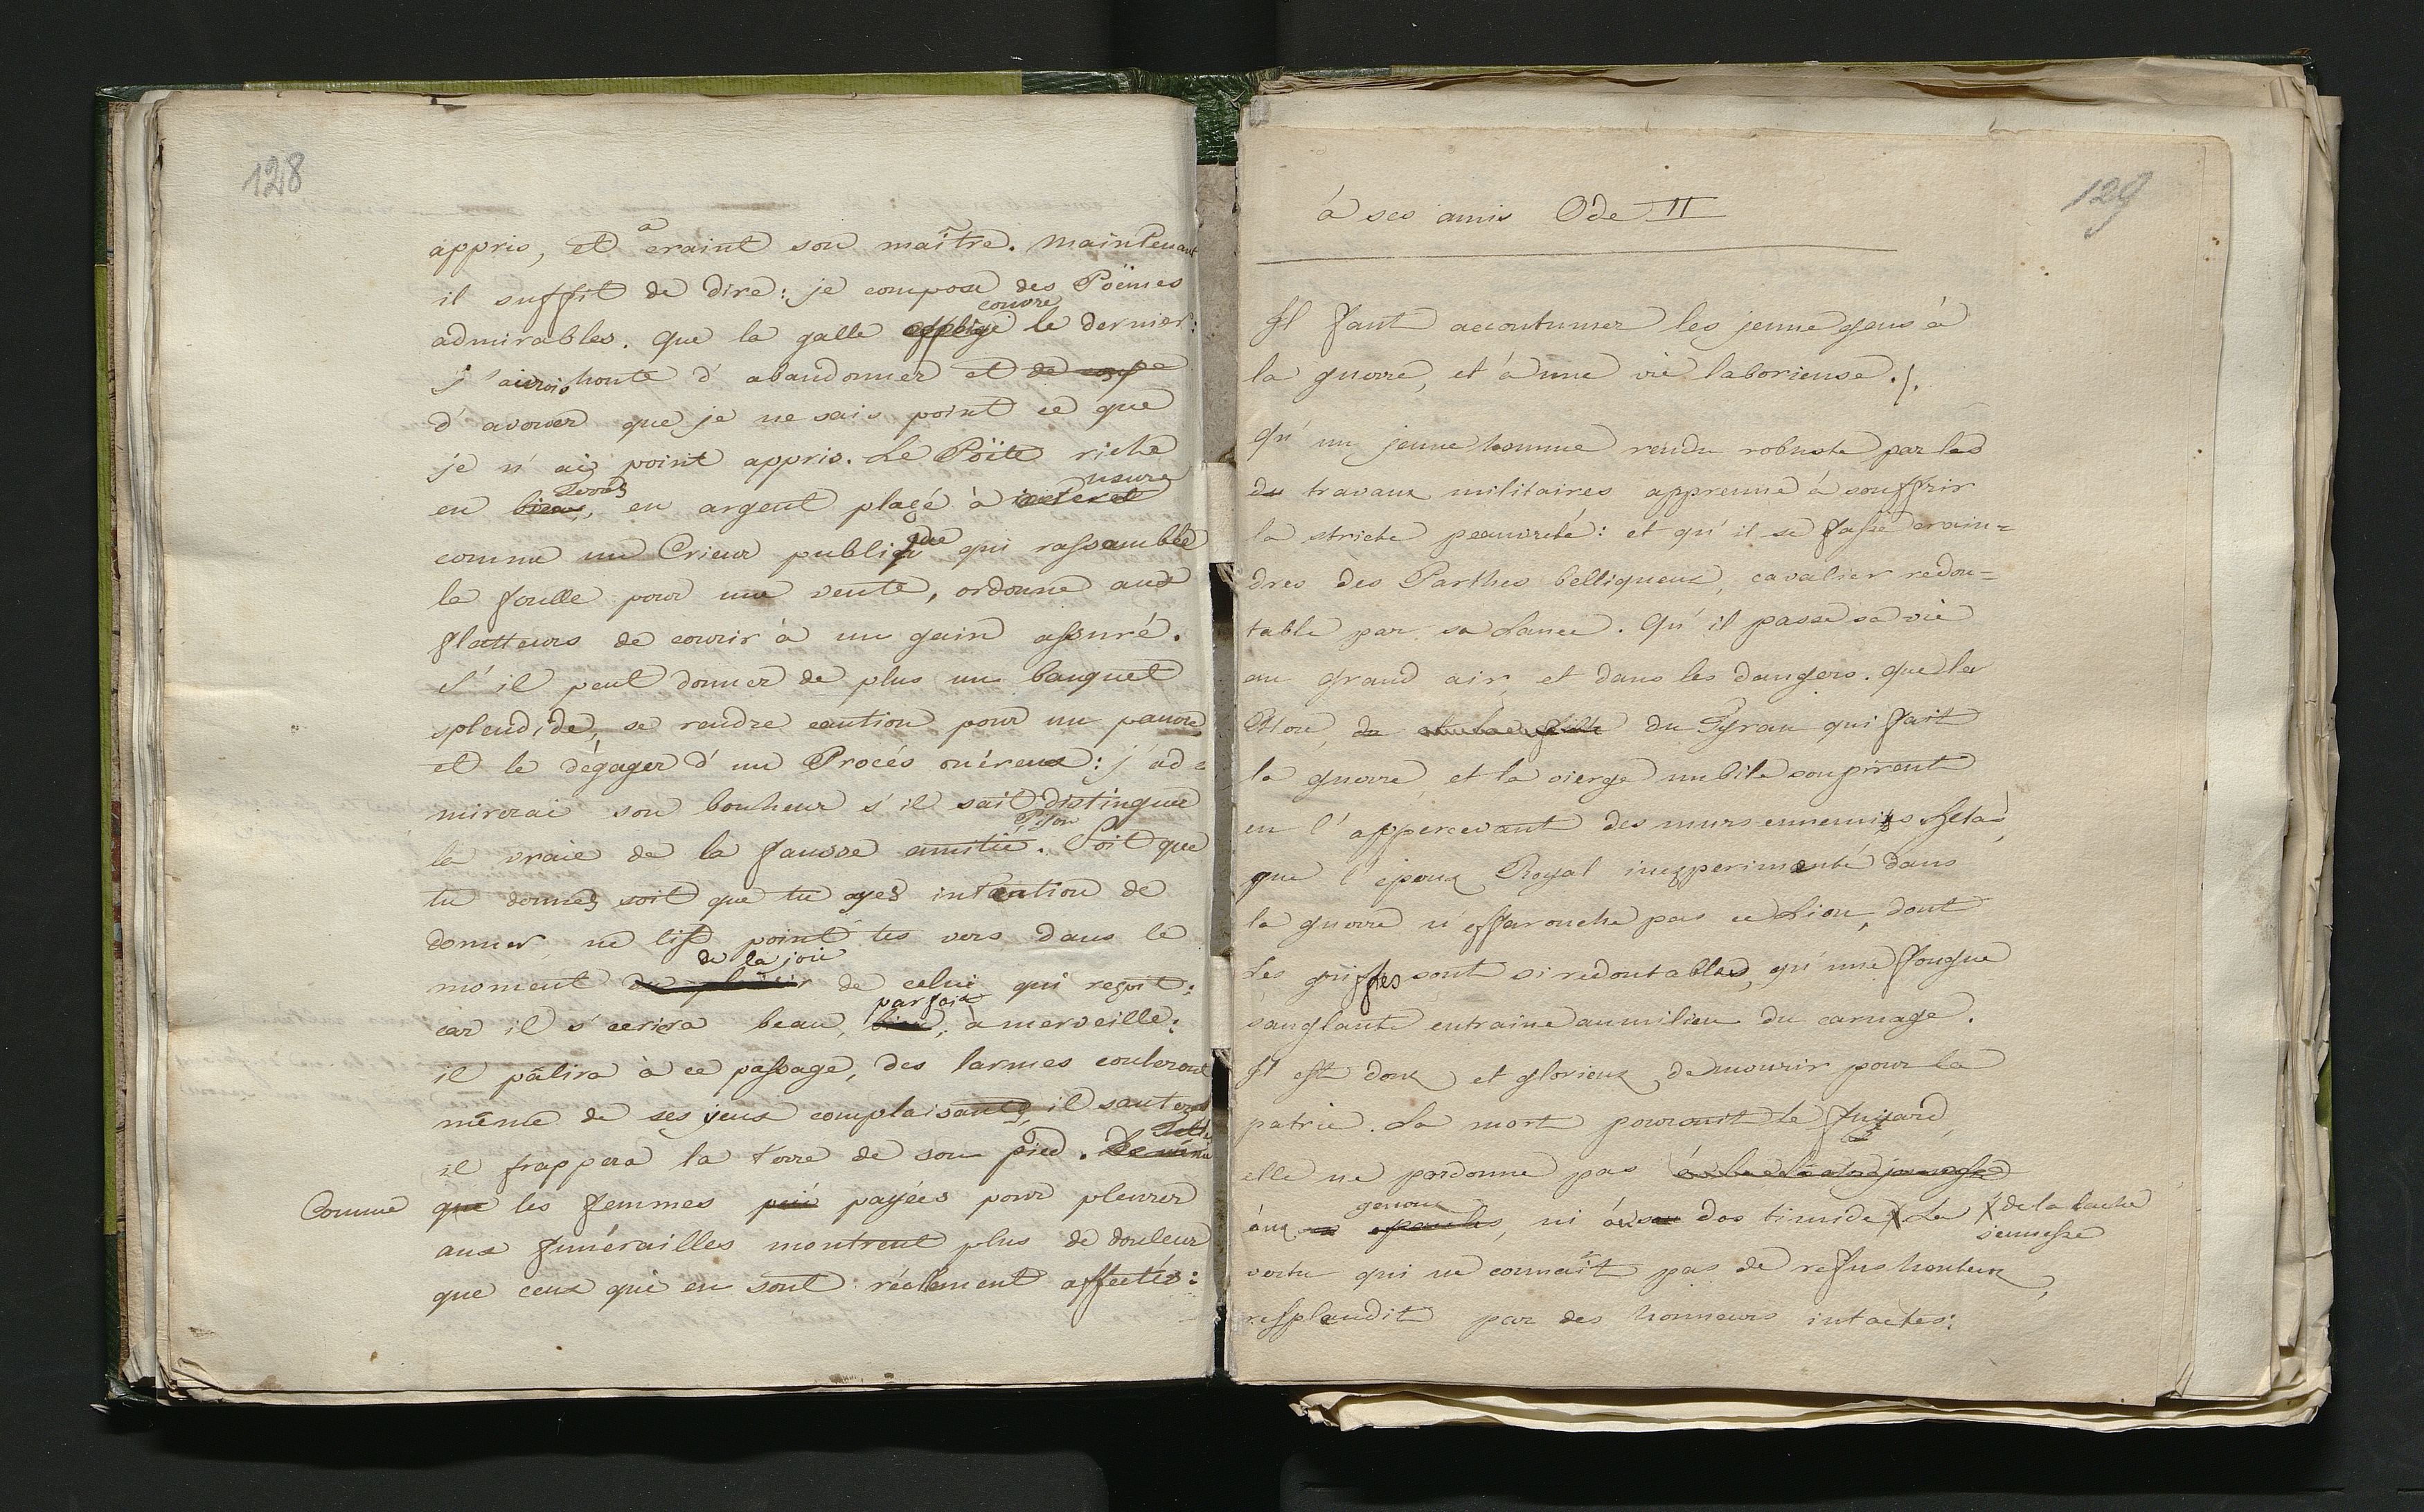 128
appris, et a craint son maître. maintenant
il suffit de dire: je compose des Poëmes
admirables. que la galle couvre le dernier:
j'aurois honte d'abandonner et de
d'avouer que je ne sais point ce que
je n'ai point appris. Le Poëte riche
en terres, en argent plaçé à usure
comme un Crieur publique qui rassemble
la foulle pour une vente, ordonne aux
flatteurs de courir à un gain assuré.
S'il peut donner de plus un banquet
splendide, se rendre caution pour un pauvre
et le dégager d'un Procés onéreux: j'ad=
mirerai son bonheur s'il sait distinguer
la vraie de la fausse amitié. Pison Soit que
tu donnes soit que tu ayes intention de
donner, ne lis point tes vers dans le
moment du plaisir de la joie de celui qui reçoit:
car il s'ecriera beau, bien, parfait, à merveille:
il pâlira à ce passage, des larmes couleront
même de ses yeux complaisants, il sautera
il frappera la terre de son pied. De même Telle
Comme que les femmes payées pour pleurer
aux funérailles montrent plus de douleur
que ceux qui en sont réellement affectés:
129
à ses amis Ode II
Il faut accoutumer les jeune gens à
la guerre, et à une vie laborieuse.
qu'un jeune homme rendu robuste par les
du travaux militaires apprenne à souffrir
la stricte peauvreté: et qu'il se fasse crain=
dres des Parthes belliqueux, cavalier redou=
table par sa Lance. Qu'il passe sa vie
au grand air et dans les dangers. que la
du Tyran qui fait
la guerre, et la vierge nubile soupirent
en l'appercevant des murs ennemis helas,
que l'époux Royal inexperimenté dans
la guerre n'effarouche pas ce Lion, dont
les griffes sont si redoutables, qu'une fougue
sanglante entraine aumilieu du carnage.
Il est doux et glorieux de mourir pour la
patrie. La mort poursuit le fuyard,
elle ne pardonne pas
aux genoux epaules, ni au dos timide X La X de la lache
jeunesse
vertu qui ne connaît pas de refus honteux,
resplandit par des honneurs intactes: